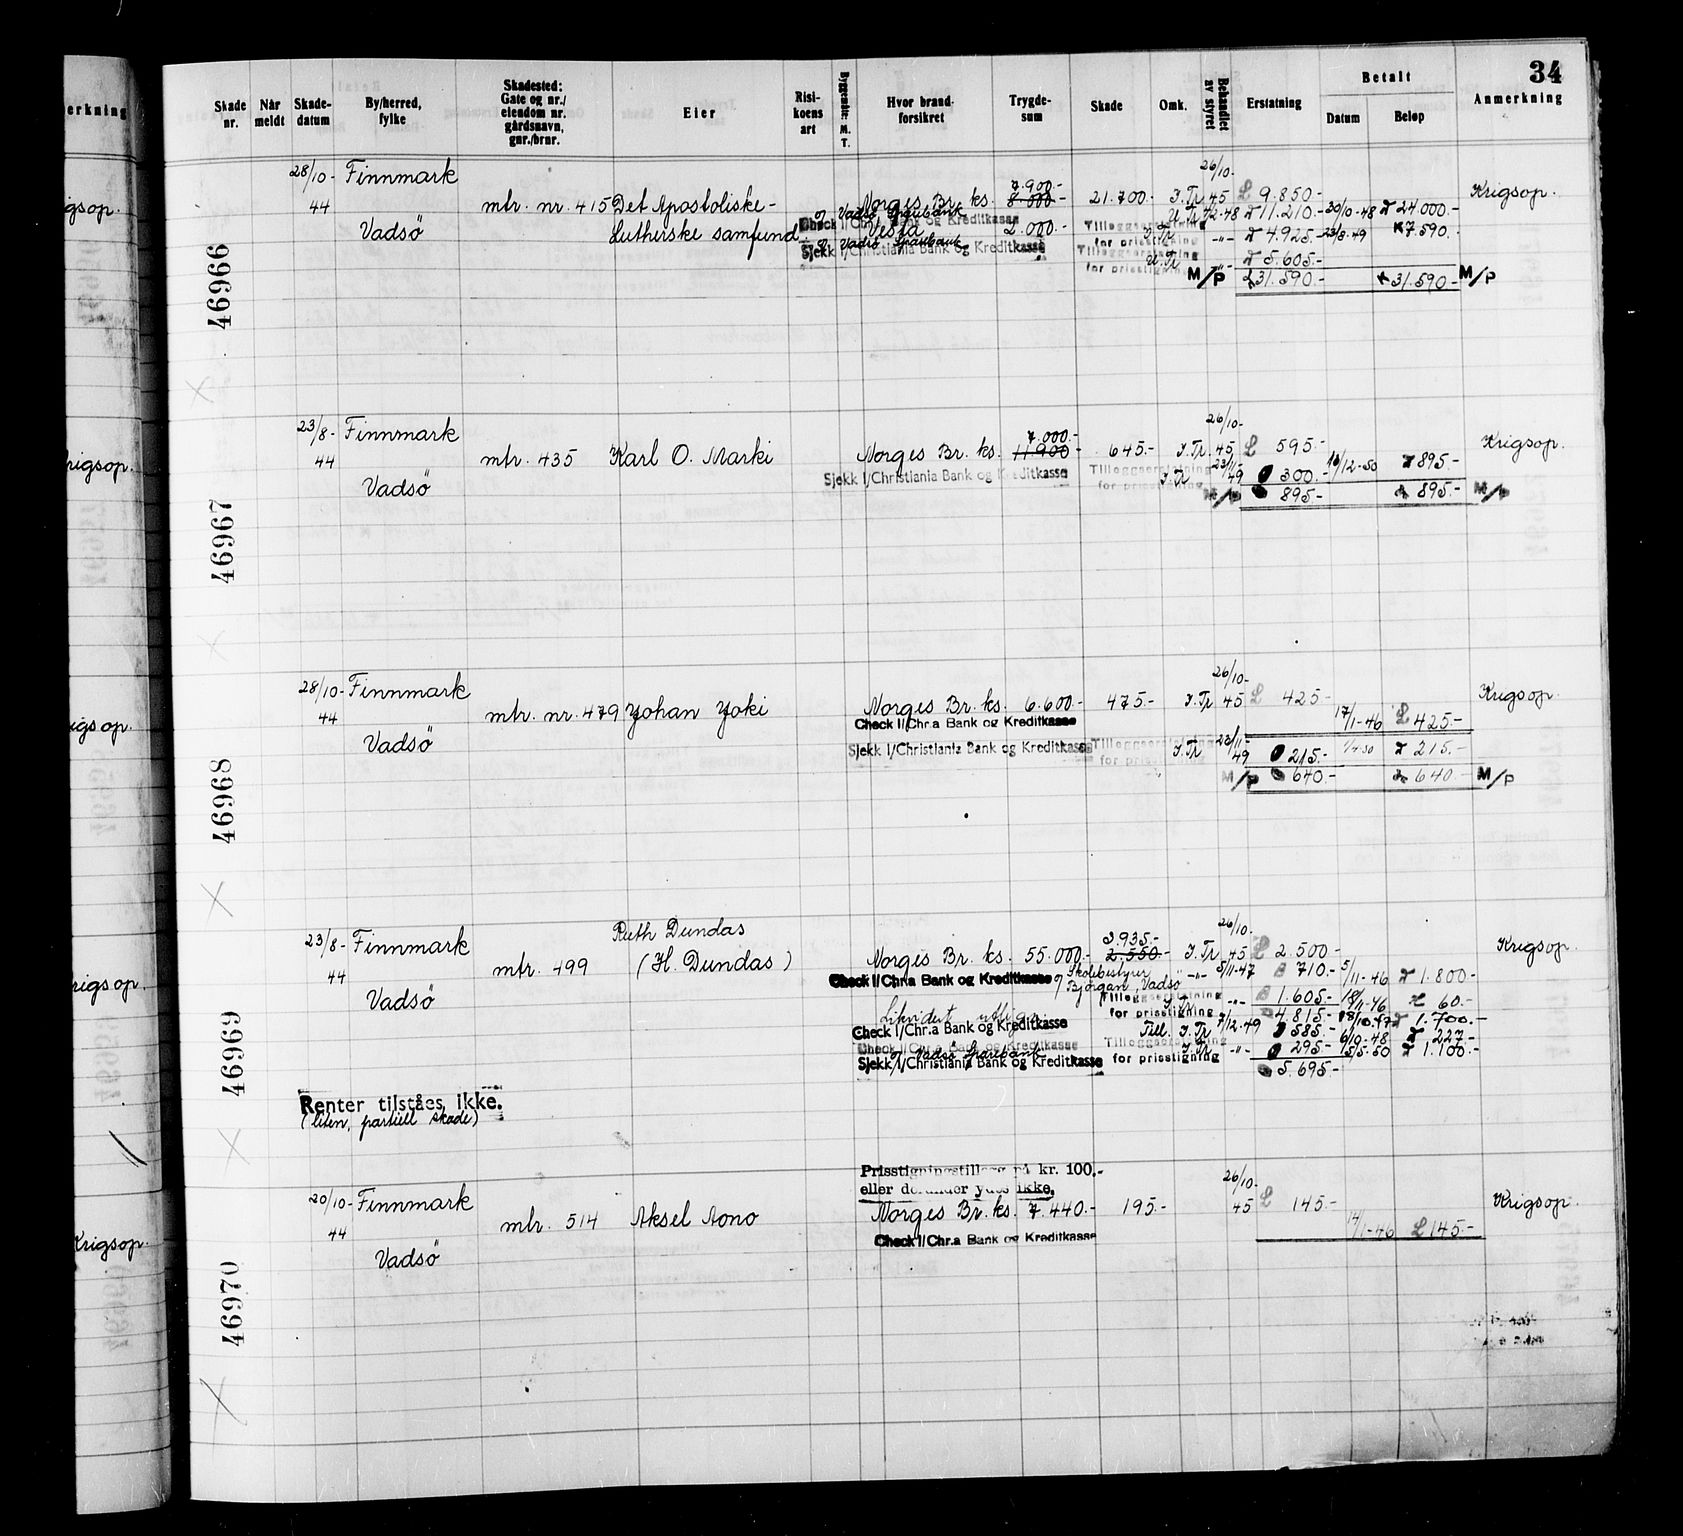 34
Skade nr.
Når meldt
Skade-datum
By/herred, fylke
Skadested: Gate og nr./ eiendom nr. gårdsnavn, gnr./brnr.
Eier
Risi-koens art
M. T.
Hvor brand-forsikret
Trygde-sum
Skade
Omk.
Behandlet av styret
Erstatning
Betalt
Datum
Beløp
Anmerkning
46966
28/10- Finnmark 7.900.- 26/10-
44 mtr. nr. 415 Det Apostoliske- Norges Br. ks. 8 500 21.700.- I.Tr. 45 £ 9.850- Krigsop.
Vadsö Lutherske samfund Vesta 2.000.- 11.210.- 30/10-48 24.000.-
Check I/Chr.a Bank og Kreditkasse o/ Vadsö Sparebank
Tilleggserstatning for prisstigning I.Tr. -"- 4.925.- 23/8-49 7.590.-
Sjekk I/Christiania Bank og Kreditkasse o/ Vadsö Sparebank
Tilleggserstatning for prisstigning U.Tr. 5.605.-
M/P 31.590.- 31.590- M/P
46967
23/8- Finnmark 7.000.- 26/10-
44 mtr. 435 Karl O. Marki Norges Br. ks. 11900 645.- I.Tr. 45 £ 595.- Krigsop.
Vadsö
Sjekk I/Christiania Bank og Kreditkasse Tilleggserstatning for prisstigning I.Tr. 23/11-49 300.- /12-50 895.-
M/P 895- 895.- M/P
46968
28/10- Finnmark 26/10-
44 mtr. nr. 479 Yohan Yoki Norges Br. ks. 6.600.- 475.- I.Tr. 45 £ 425- Krigsop.
Vadsö
Check I/Chr.a Bank og Kreditkasse 17/1-46 £ 425-
Sjekk I/Christiania Bank og Kreditkasse Tilleggserstatning for prisstigning I.Tr. 23/11-49 215.- 215.-
M/P 640.- 640.- M/P
46969
23/8- Finnmark Ruth Dundas 3.935.- 26/10-
44 mtr. 499 (H. Dundas) Norges Br. ks. 55.000.- 2,550- I.Tr. 45 £ 2.500- Krigsop.
Vadsö
Check I/Chr.a Bank og Kreditkasse o/ Skolebestyrer Bjørgan, Vadsö -"- 5/11-47 710.- 5/11-46 1.800-
Tilleggserstatning for prisstigning I.Tr. -"- 1.605.- /11-46 60.-
Check I/Chr.a Bank og Kreditkasse 4.815.- 1.700.-
Check I/Chr.a Bank og Kreditkasse Till. I.Tr. 7/12-49 585.- 6/10-48 227.-
Sjekk I/Christiania Bank og Kreditkasse o/ Vadsö Sparebank
Tilleggserstatning for prisstigning I.Tr. -"- 295- 15/5-50 1.100.-
5.695.-
Renter tilståes ikke.
(liten, partiell skade)
46970
Prisstigningstillegg på kr. 100,-
eller derunder ydes ikke.
20/10- Finnmark 26/10-
44 mtr. 514 Aksel Aono Norges Br. ks. 7.440.- 195.- 45 £ 145.- Krigsop.
Vadsö
Check I/Chr.a Bank og Kreditkasse 14/1-46 £ 145.-